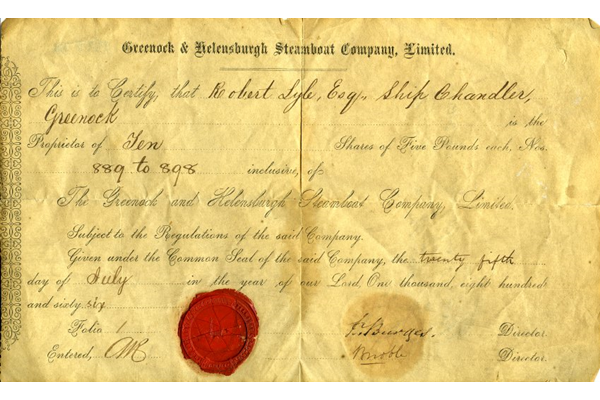 Greenock & Helensburgh Steamboat Company, Limited.
This is to Certify, that Robert Lyle, Esq., Ship Chandler,
Greenock is the
Proprietor of Ten Shares of Five Pounds each, Nos.
889 to 898 inclusive, of
The Greenock and Helensburgh Steamboat Company, Limited.
Subject to the Regulations of the said Company.
Given under the Common Seal of the said Company, the twenty fifth
day of July in the year of our Lord, One thousand, eight hundred
and sixty six
Folio 1 Director.
Entered, Director.